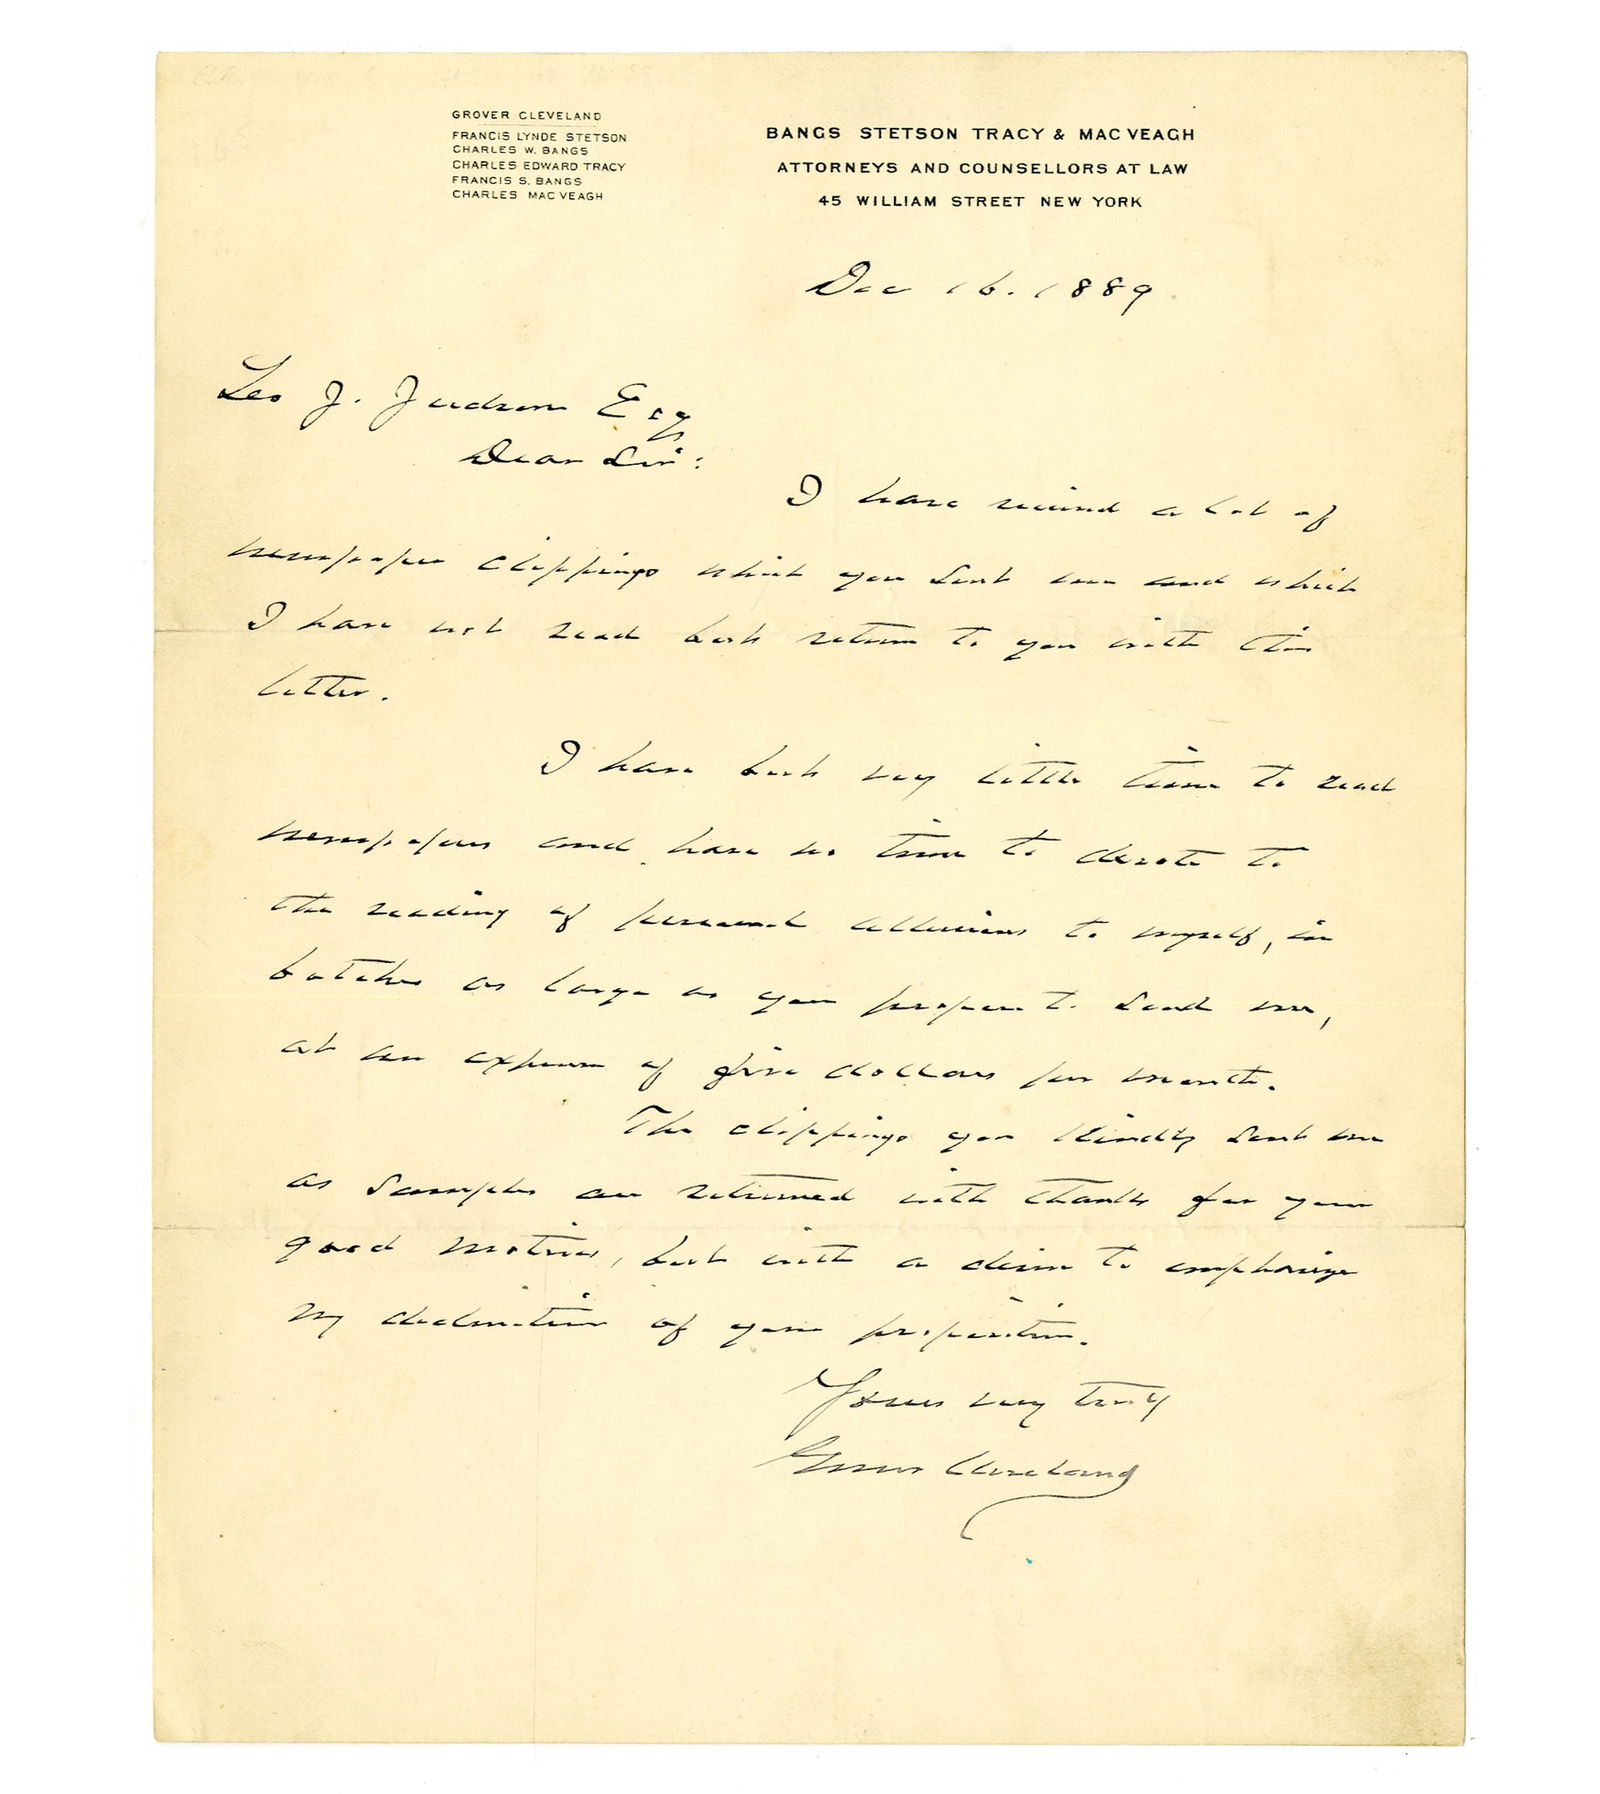 GROVER CLEVELAND
FRANCIS LYNDE STETSON
CHARLES W. BANGS
CHARLES EDWARD TRACY
FRANCIS S. BANGS
CHARLES MAC VEAGH
BANGS STETSON TRACY & MAC VEAGH
ATTORNEYS AND COUNSELLORS AT LAW
45 WILLIAM STREET NEW YORK
Dec 16. 1889
Leo J. Judson Esq
Dear Sir:
I have received a lot of
newspaper clippings which you sent me and which
I have not read but return to you with this
letter.
I have but very little time to read
newspapers and have no time to devote to
the reading of personal allusions to myself, in
batches as large as you propose to send me,
at an expense of five dollars per month.
The clippings you kindly sent me
as samples are returned with thanks for your
good motives, but with a desire to emphasize
my declination of your proposition.
Yours very truly
Grover Cleveland